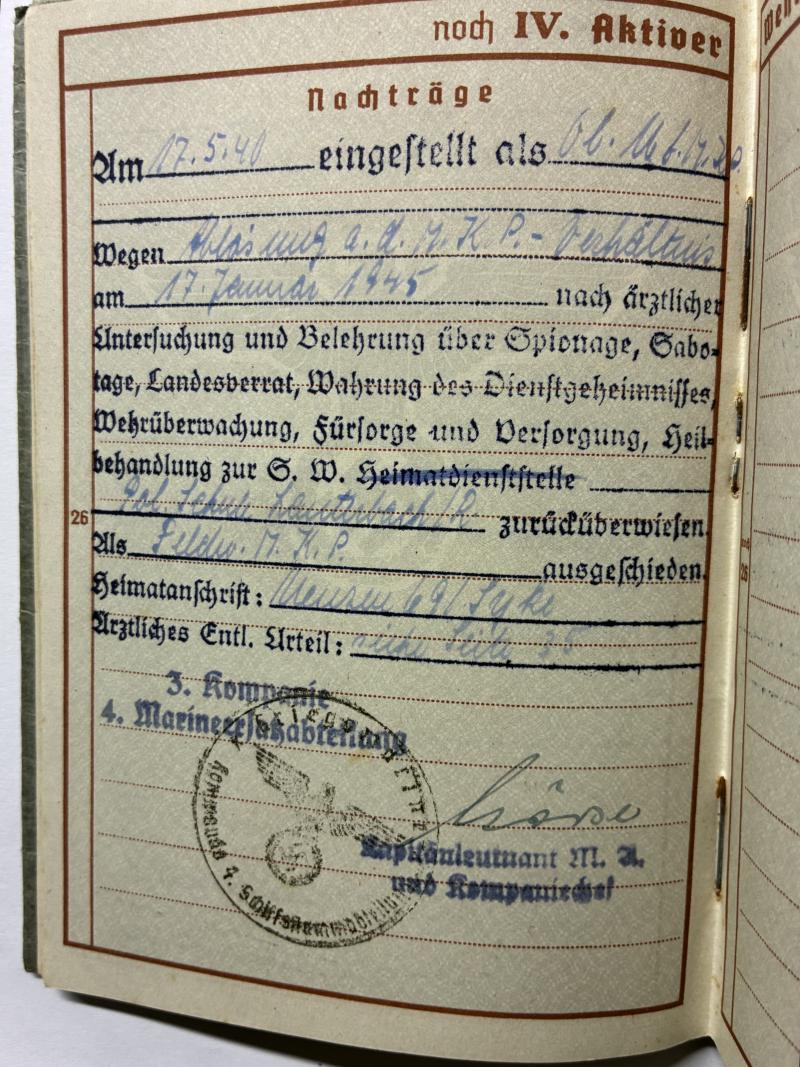 noch IV. Aktiver
Nachträge
Am 17.5.40 eingestellt als Ob.
Wegen Ablösung a. d. M. K. P. - Verhältnis
am 17. Januar 1945 nach ärztlicher
Untersuchung und Belehrung über Spionage, Sabo-
tage, Landesverrat, Wahrung des Dienstgeheimnisses,
Wehrüberwachung, Fürsorge und Versorgung, Heil-
behandlung zur S. W. Heimatdienststelle
Pol. Schule Lauterbach/R zurücküberwiesen.
26
Als Feldw. M. K. P. ausgeschieden.
Heimatanschrift: 69/Syke
Ärztliches Entl. Urteil: siehe Seite 35
3. Kompanie
4. Marineersatzabteilung
Kriegsmarine
Kommando 4. Schiffsstammabteilung
Kapitänleutnant M. A.
und Kompaniechef
26